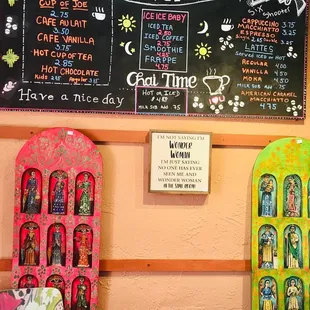 CUP OF JOE
2.75
CAFE AU LAIT
2.50
CAFE VANILLA
2.75
HOT CUP OF TEA
2.85
HOT CHOCOLATE
KIDS 2.85
Have a nice day
ICE ICE BABY
ICED TEA
2.80
ICED COFFEE
2.75
SMOOTHIE
4.95
FRAPPE
4.75
Chai Time
HOT OR ICED
4.50
MILK SUB ADD .75
CAPPUCCINO
MACCHIATO 3.75
ESPRESSO
LATTES
HOT OR ICED
REGULAR 4.00
VANILLA 4.50
MOCHA 4.50
MILK SUB ADD .75
AMERICAN CARAMEL
MACCHIATTO 4.75
I'M NOT SAYING I'M
WONDER
WOMAN
I'M JUST SAYING
NO ONE HAS EVER
SEEN ME AND
WONDER WOMAN
IN THE SAME ROOM